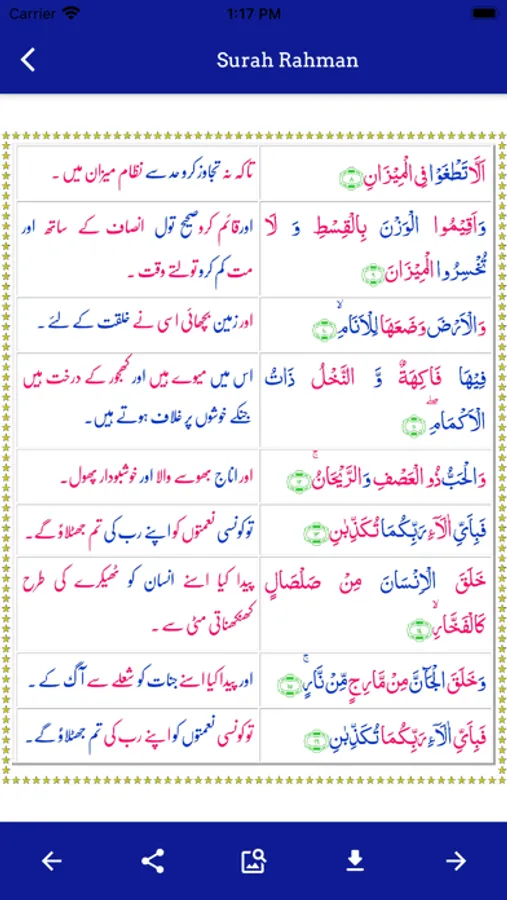 Carrier 1:17 PM
Surah Rahman
اَلَّا تَطْغَوْا فِی الْمِیْزَانِ ﴿۸﴾
تاکہ نہ تجاوز کرو حد سے نظام میزان میں ۔
وَاَقِیْمُوا الْوَزْنَ بِالْقِسْطِ وَ لَا
تُخْسِرُوا الْمِیْزَانَ ﴿۹﴾
اورقائم کروصحیح تول انصاف کے ساتھ اور
مت کم کرو تولتے وقت ۔
وَالْاَرْضَ وَضَعَهَا لِلْاَنَامِ ۙ﴿۱۰﴾
اور زمین بچھائی اسی نے خلقت کے لئے ۔
فِیْهَا فَاكِهَةٌ وَّ النَّخْلُ ذَاتُ
الْاَكْمَامِ ۖ﴿۱۱﴾
اس میں میوے ہیں اور کھجور کے درخت ہیں
جنکے خوشوں پر غلاف ہوتے ہیں۔
وَالْحَبُّ ذُو الْعَصْفِ وَالرَّیْحَانُ ۚ﴿۱۲﴾
اور اناج بھوسے والا اور خوشبودار پھول۔
فَبِاَیِّ اٰلَآءِ رَبِّكُمَا تُكَذِّبٰنِ ﴿۱۳﴾
تو کونسی نعمتوں کو اپنے رب کی تم جھٹلاؤ گے۔
خَلَقَ الْاِنْسَانَ مِنْ صَلْصَالٍ
كَالْفَخَّارِ ۙ﴿۱۴﴾
پیدا کیا اسنے انسان کو ٹھیکرے کی طرح
کھنکھناتی مٹی سے ۔
وَخَلَقَ الْجَآنَّ مِنْ مَّارِجٍ مِّنْ نَّارٍ ۚ﴿۱۵﴾
اور پیدا کیا اسنے جنات کو شعلے سے آگ کے ۔
فَبِاَیِّ اٰلَآءِ رَبِّكُمَا تُكَذِّبٰنِ ﴿۱۶﴾
تو کونسی نعمتوں کو اپنے رب کی تم جھٹلاؤ گے۔